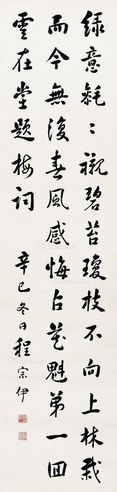 綠意毿〻襯碧苔瓊枝不向上林栽
而今無復春風感悔占花魁第一回
雲在堂題梅詞
辛巳冬日程宗伊